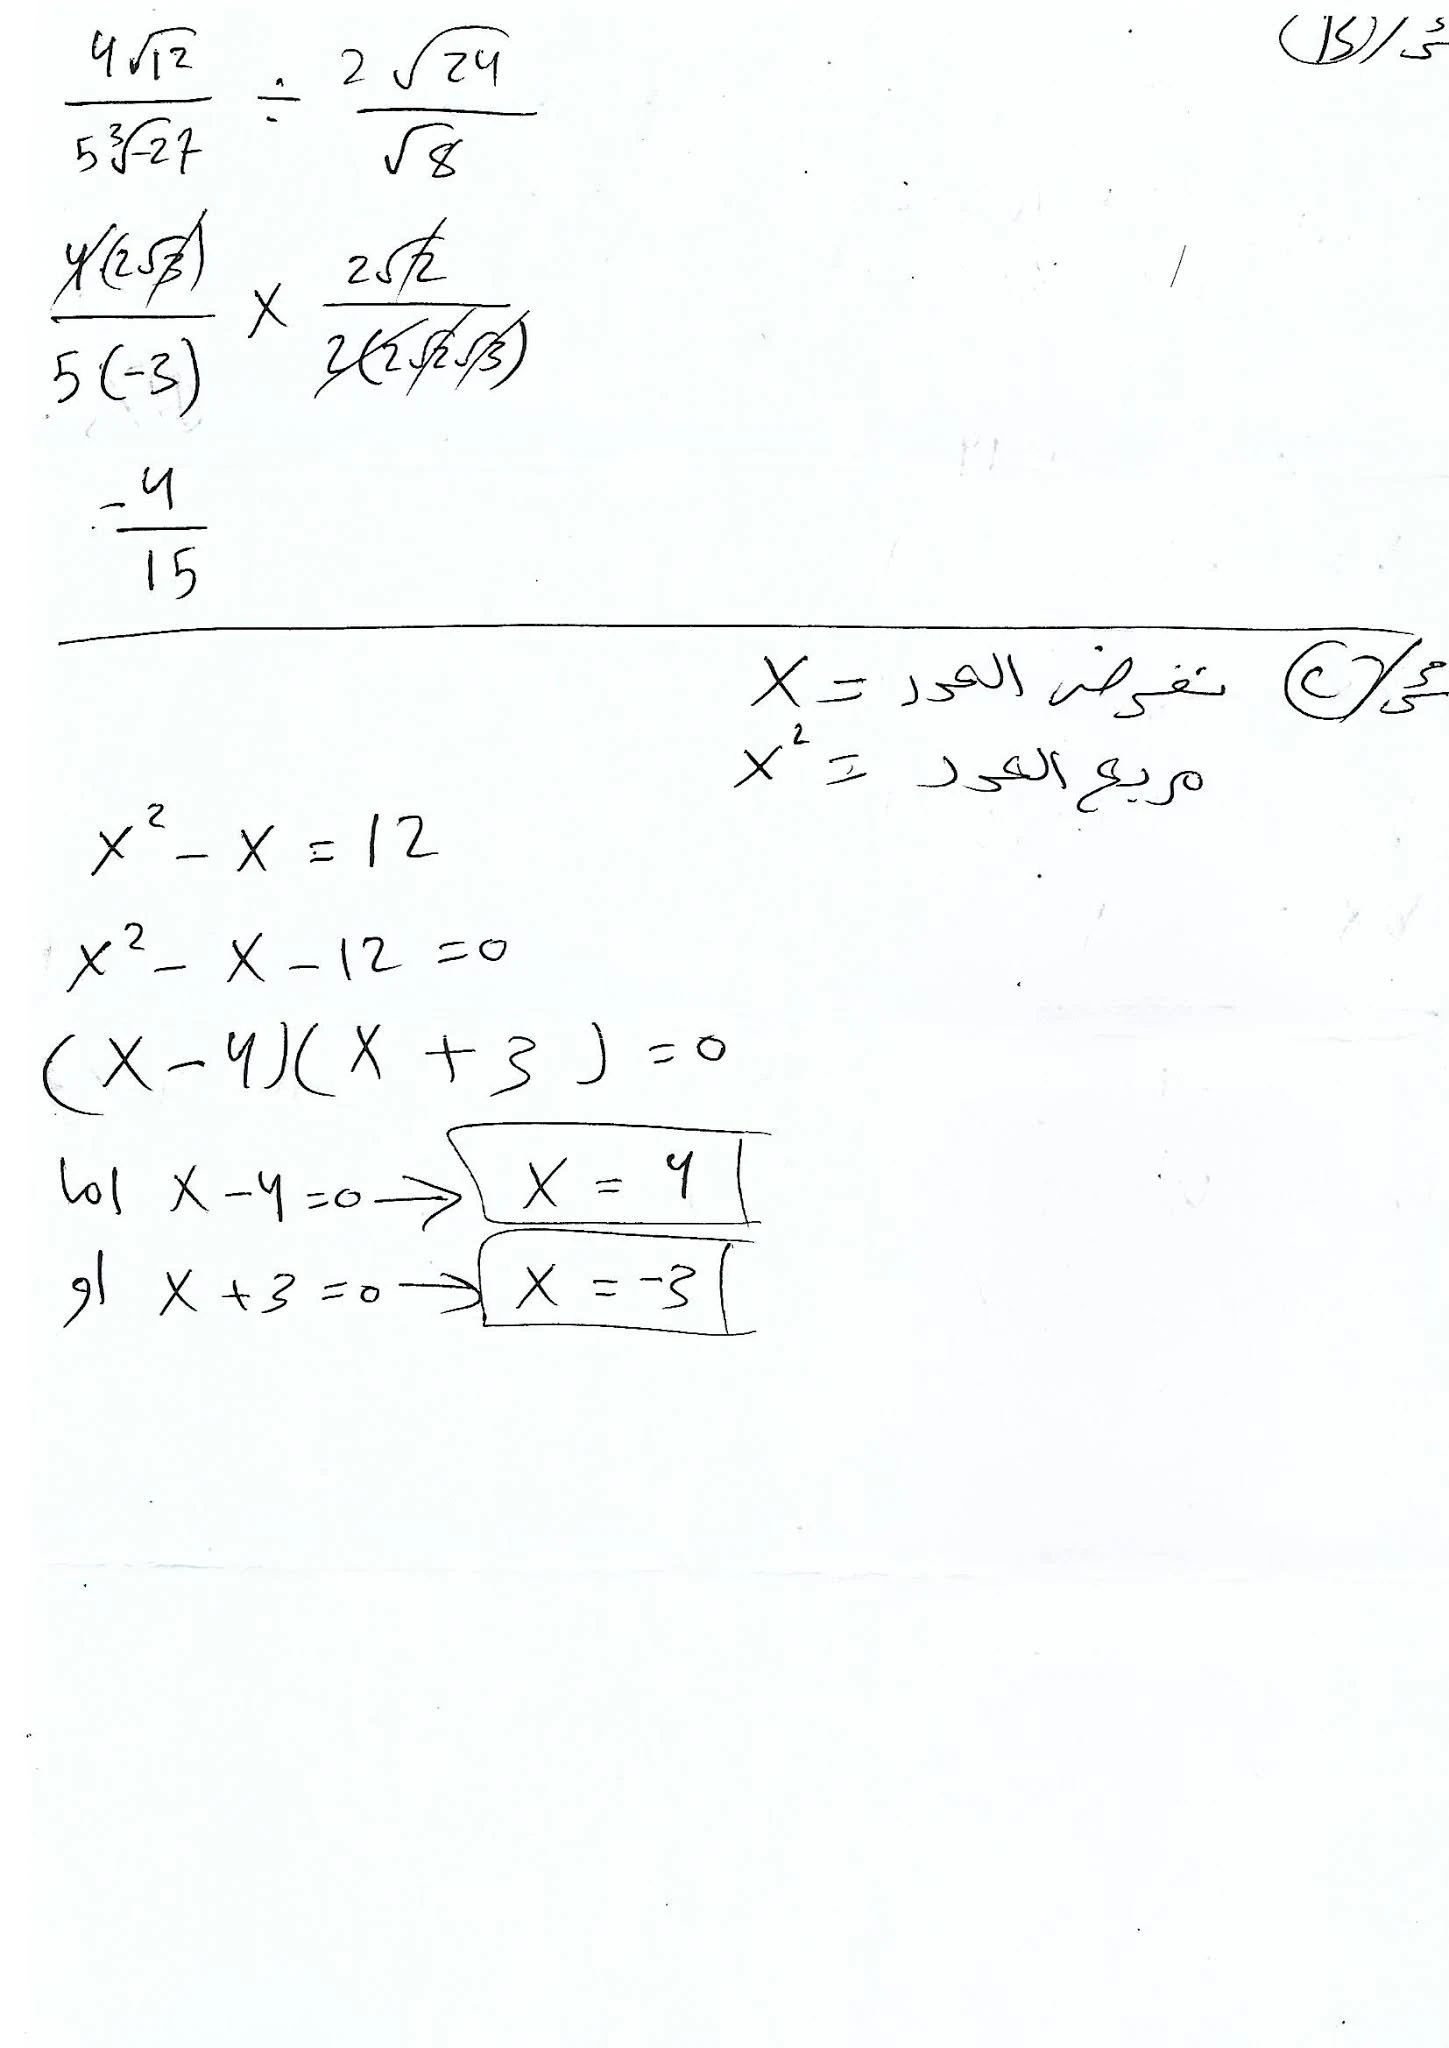 4√12 / 5∛-27 ÷ 2√24 / √8
4(2√3) / 5(-3) × 2√2 / 2(2√2√3)
-4 / 15
نفرض العدد = X
مربع العدد = X²
X² - X = 12
X² - X - 12 = 0
(X - 4)(X + 3) = 0
اما X - 4 = 0 → X = 4
او X + 3 = 0 → X = -3